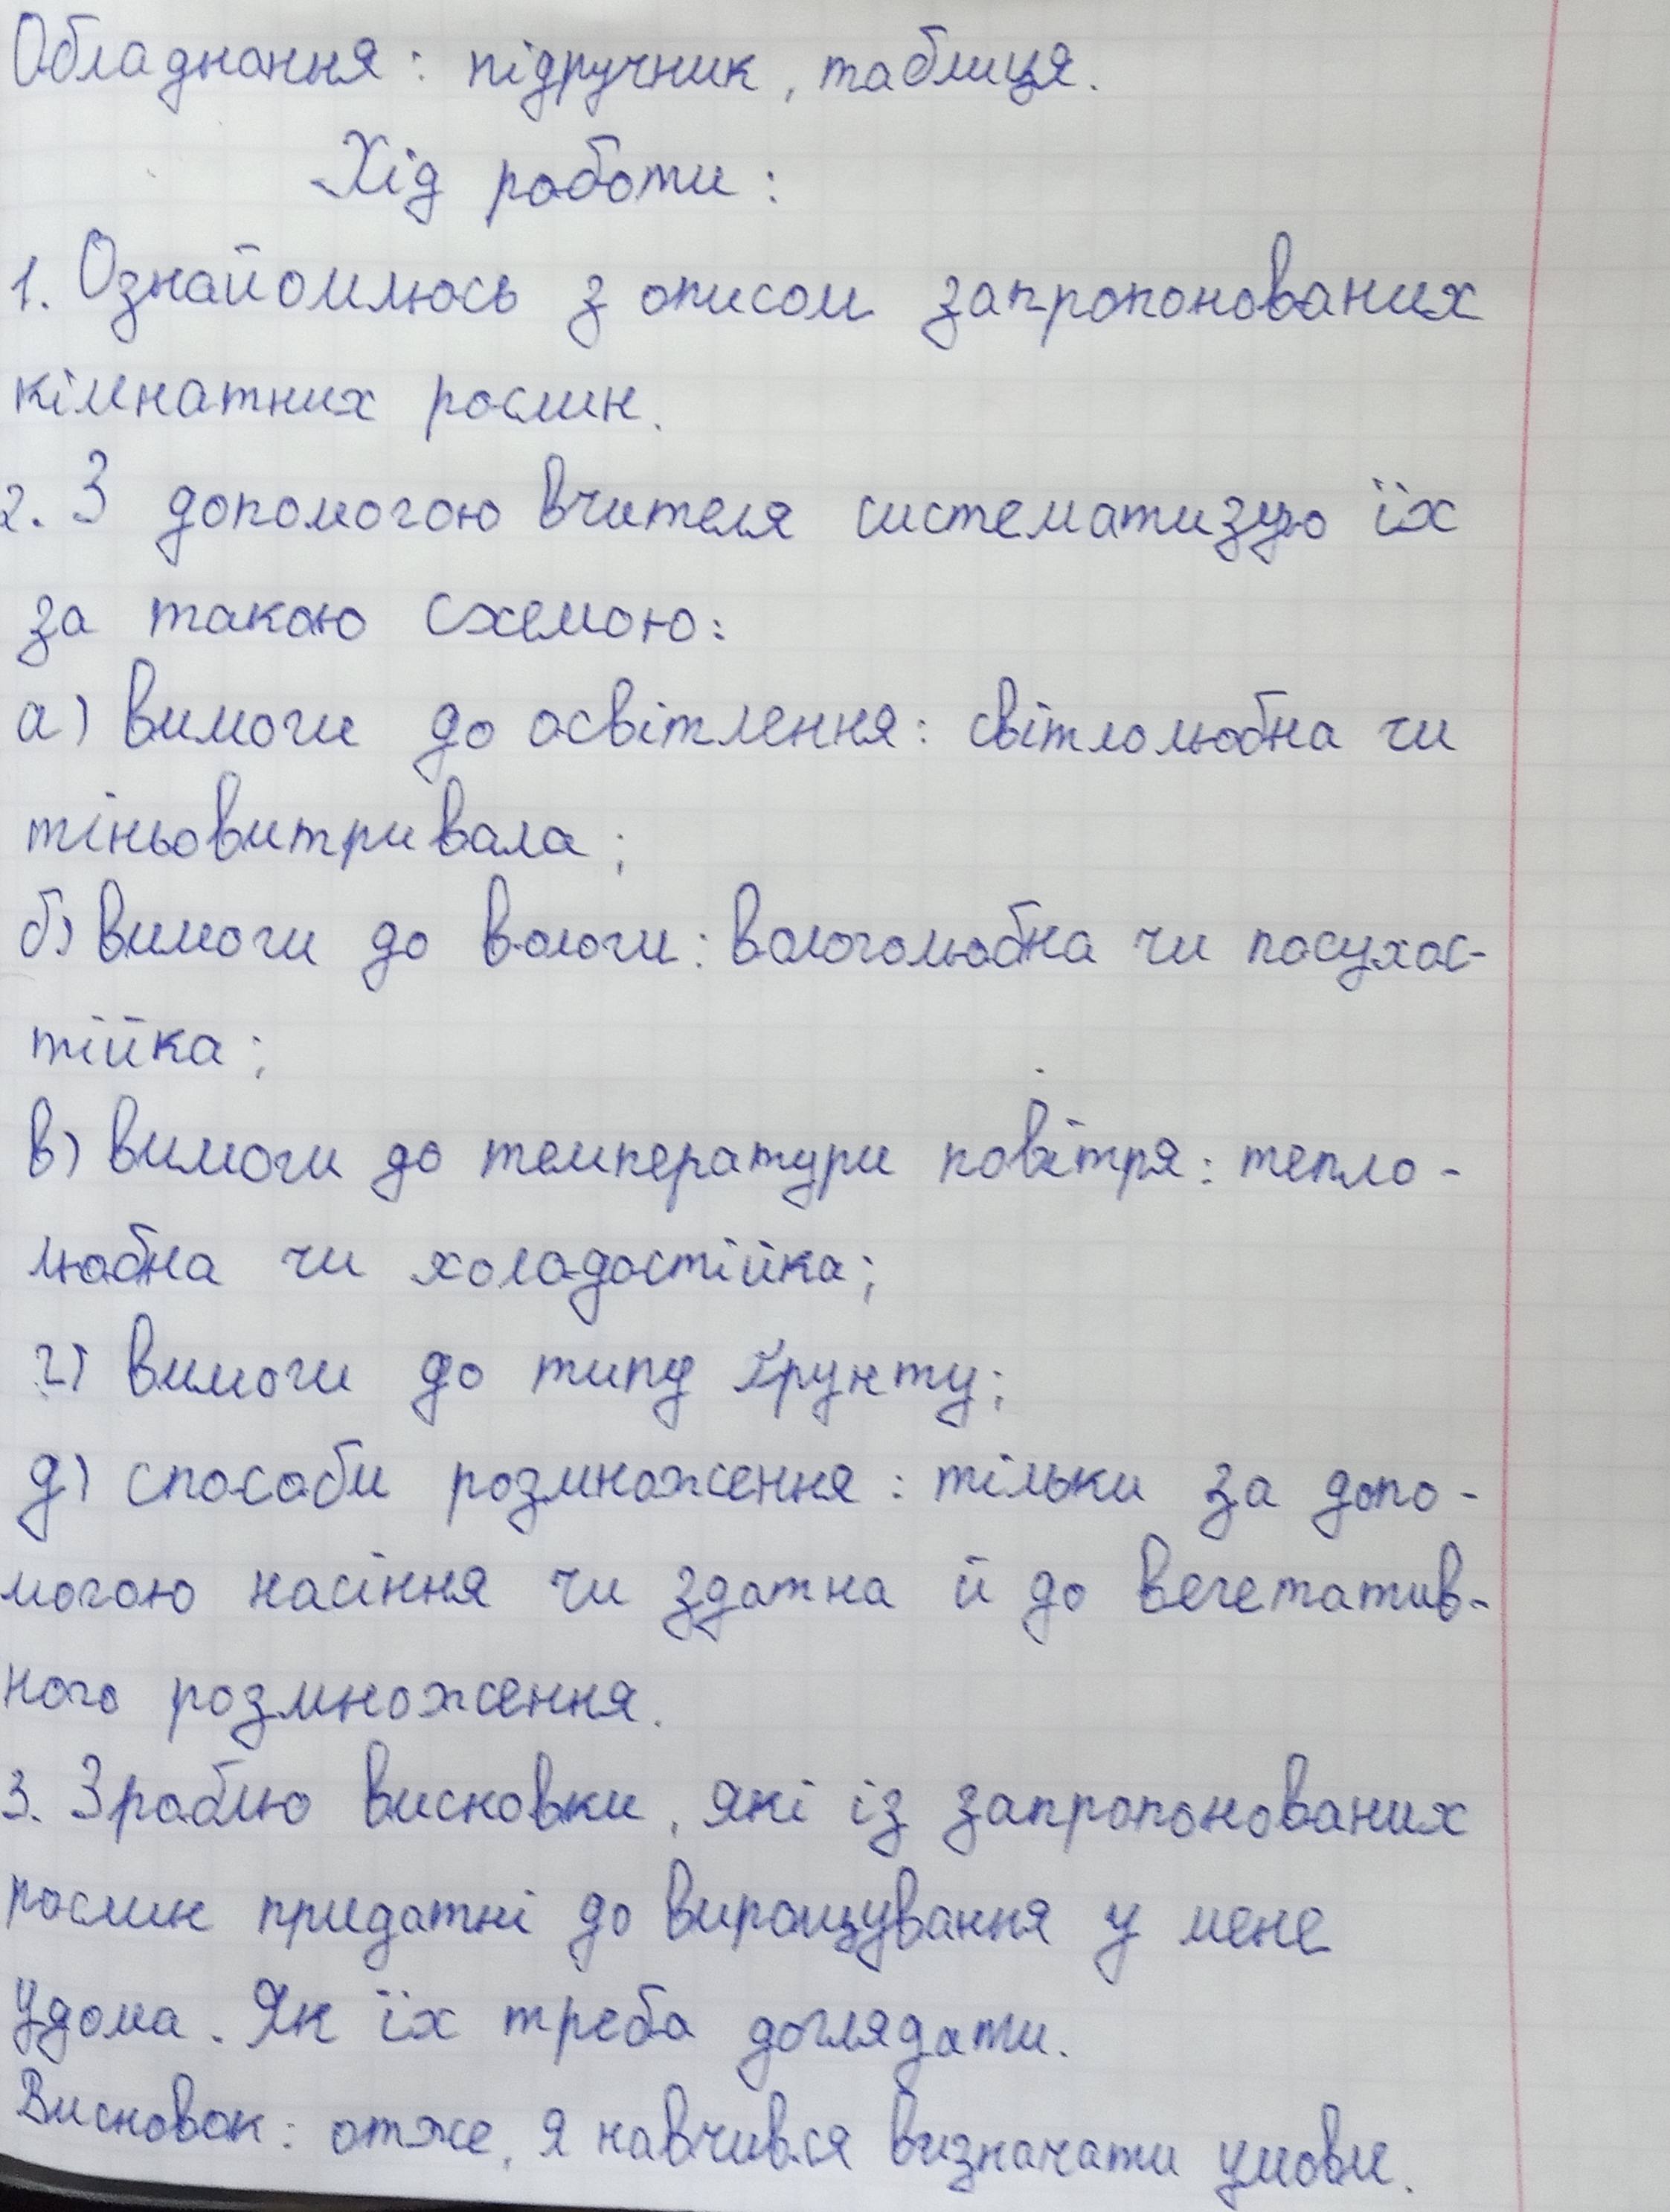 Обладнання: підручник, таблиця.
Хід роботи:
1. Ознайомлюсь з описом запропонованих
кімнатних рослин.
2. З допомогою вчителя систематизую їх
за такою схемою:
а) вимоги до освітлення: світлолюбна чи
тіньовитривала;
б) вимоги до вологи: вологолюбна чи посухос-
тійка;
в) вимоги до температури повітря: тепло-
любна чи холодостійка;
г) вимоги до типу ґрунту;
д) способи розмноження: тільки за допо-
могою насіння чи здатна й до вегетатив-
ного розмноження.
3. Зроблю висновки, які із запропонованих
рослин придатні до вирощування у мене
удома. Як їх треба доглядати.
Висновок: отже, я навчився визначати умови.